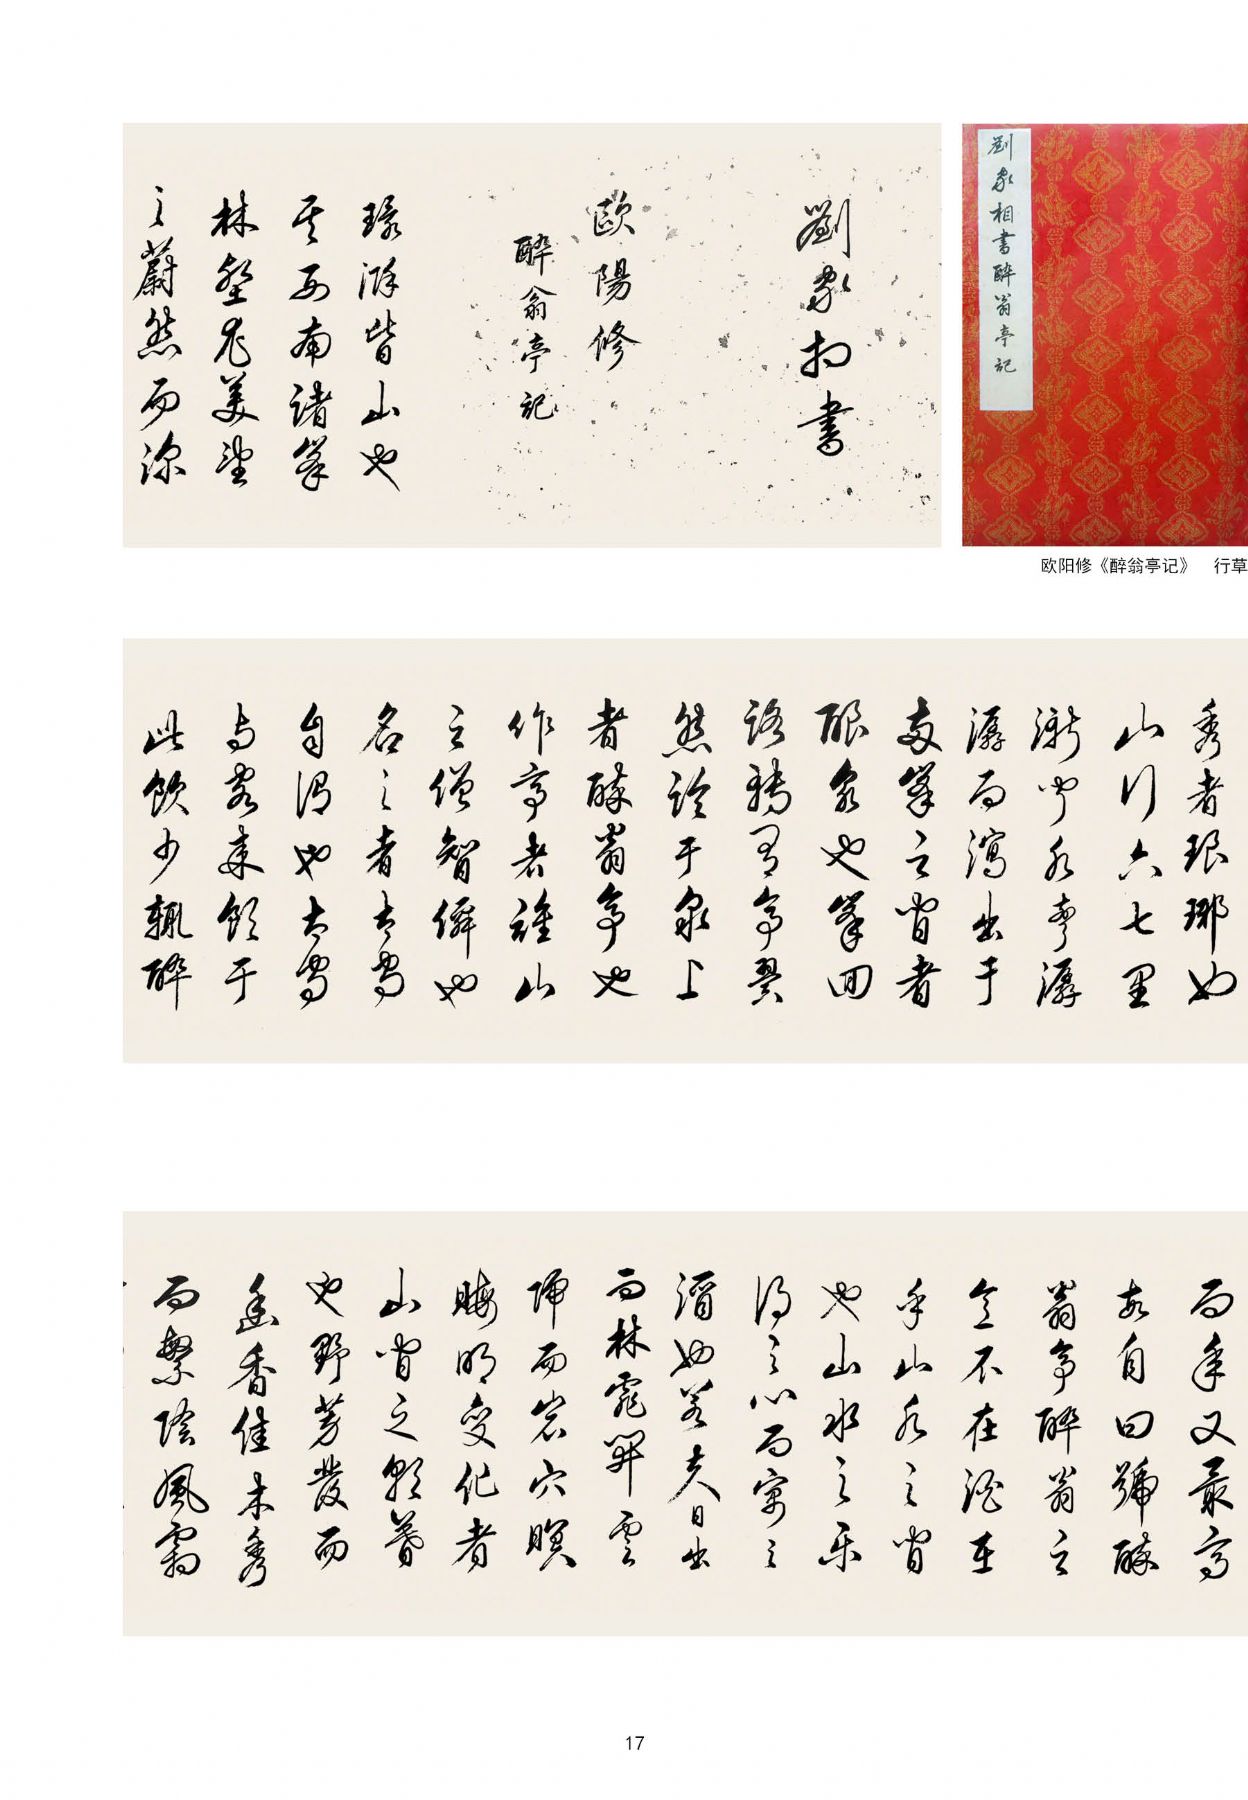 劉家相書醉翁亭記
欧阳修《醉翁亭记》 行草
劉家相書
歐陽修
醉翁亭記
環滁皆山也
其西南諸峯
林壑尤美望
之蔚然而深
秀者琅琊也
山行六七里
漸聞水聲潺
潺而瀉出于
兩峯之間者
釀泉也峯回
路轉有亭翼
然臨于泉上
者醉翁亭也
作亭者誰山
之僧智僊也
名之者太守
自謂也太守
與客來飲于
此飲少輒醉
而年又最高
故自曰號醉
翁亭醉翁之
意不在酒在
乎山水之間
也山水之樂
得之心而寓之
酒也若夫日出
而林霏開雲
歸而岩穴暝
晦明變化者
山間之朝暮
也野芳發而
幽香佳木秀
而繁陰風霜
17